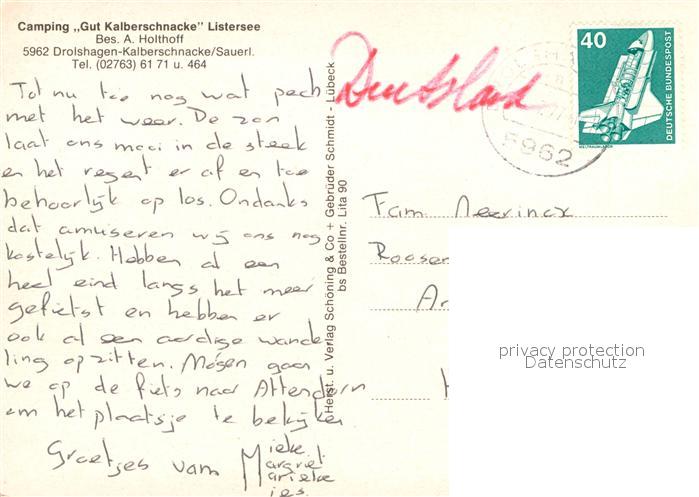 Camping „Gut Kalberschnacke" Listersee
Bes. A. Holthoff
5962 Drolshagen-Kalberschnacke/Sauerl.
Tel. (02763) 61 71 u. 464
Tot nu toe nog wat pech
met het weer. De zon
laat ons mooi in de steek
en het regent er af en toe
behoorlijk op los. Ondanks
dat amuseren wij ons nog
kostelijk. Hebben al een
heel eind langs het meer
gefietst en hebben er
ook al een aardige wande
ling opzitten. Mosen gaan
we op de fiets naar Attendorn
om het plaatsje te bekijken
Groetjes van Mieke
Margriet
Marieke
ies.
Herst. u. Verlag Schöning & Co + Gebrüder Schmidt - Lübeck
bs Bestellnr. Lita 90
Deutsland
40
DEUTSCHE BUNDESPOST
WELTRAUMLABOR
5962
Fam. Meerinax
Roosen
Ar
privacy protection
Datenschutz